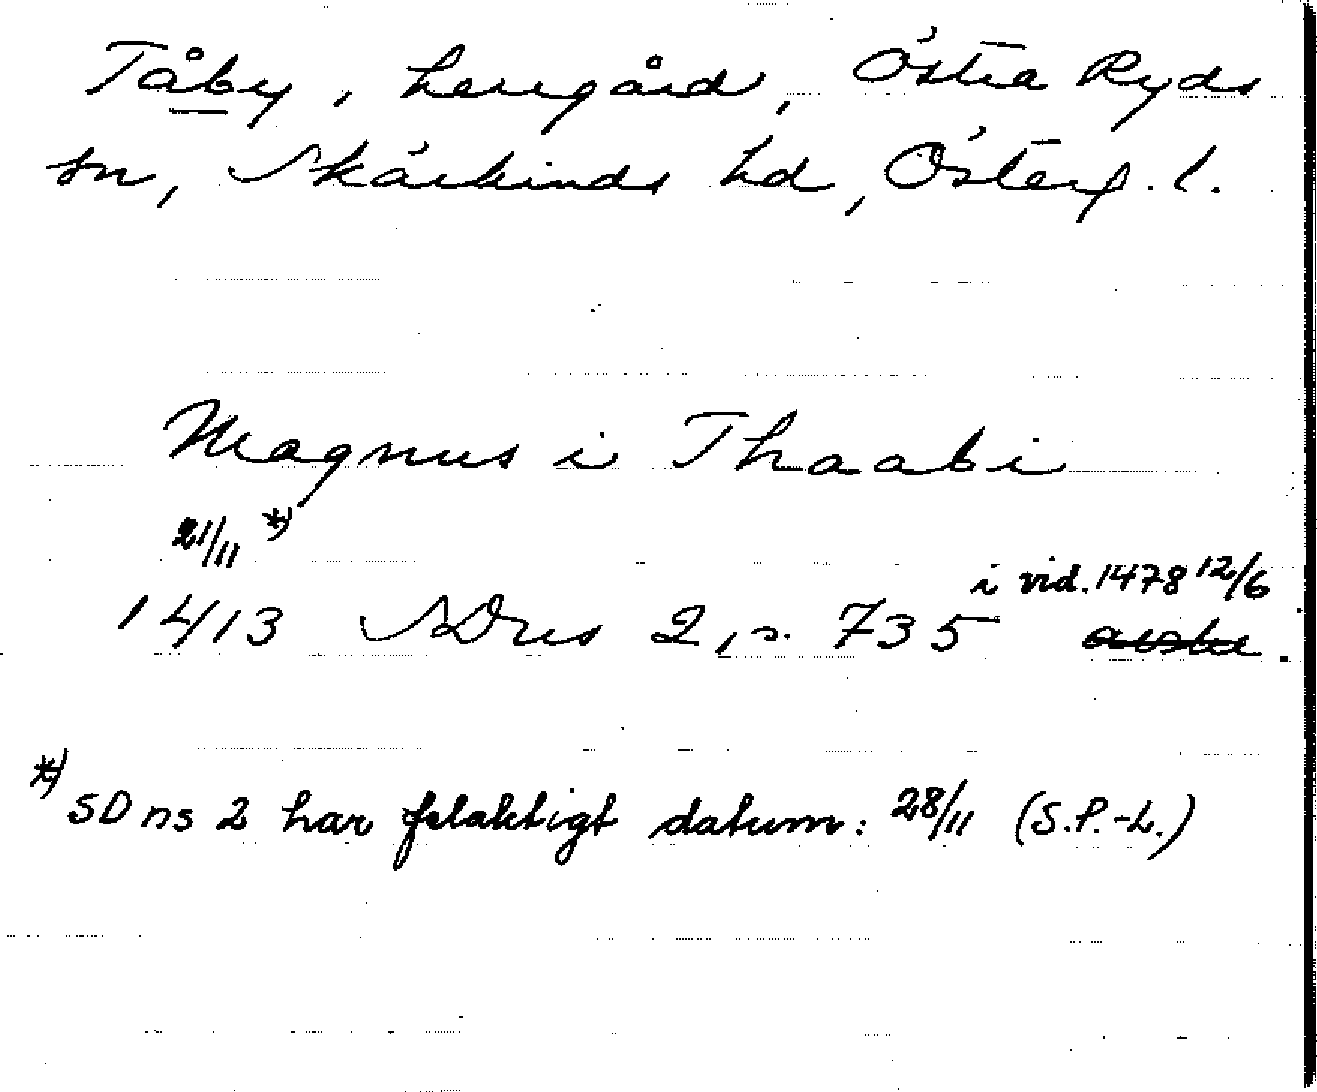 Tåby, herrgård, Östra Ryds
sn, Skärkinds hd, Österg. l.
Magnus i Thaabi
21/11 *)
i vid. 1478 12/6
1413 SDns 2, s. 735 avskr.
*) SD ns 2 har felaktigt datum: 28/11 (S.P.-L.)